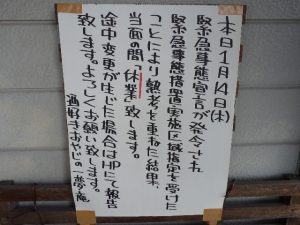 本日1月14日(木)
緊急事態宣言が発令され
緊急事態措置実施区域指定を受けた
ことにより熟考を重ねた結果、
当面の間「休業」致します。
途中変更が生じた場合はHPにて報告
致します。よろしくお願い致します。
酒好きおやじの一夢庵